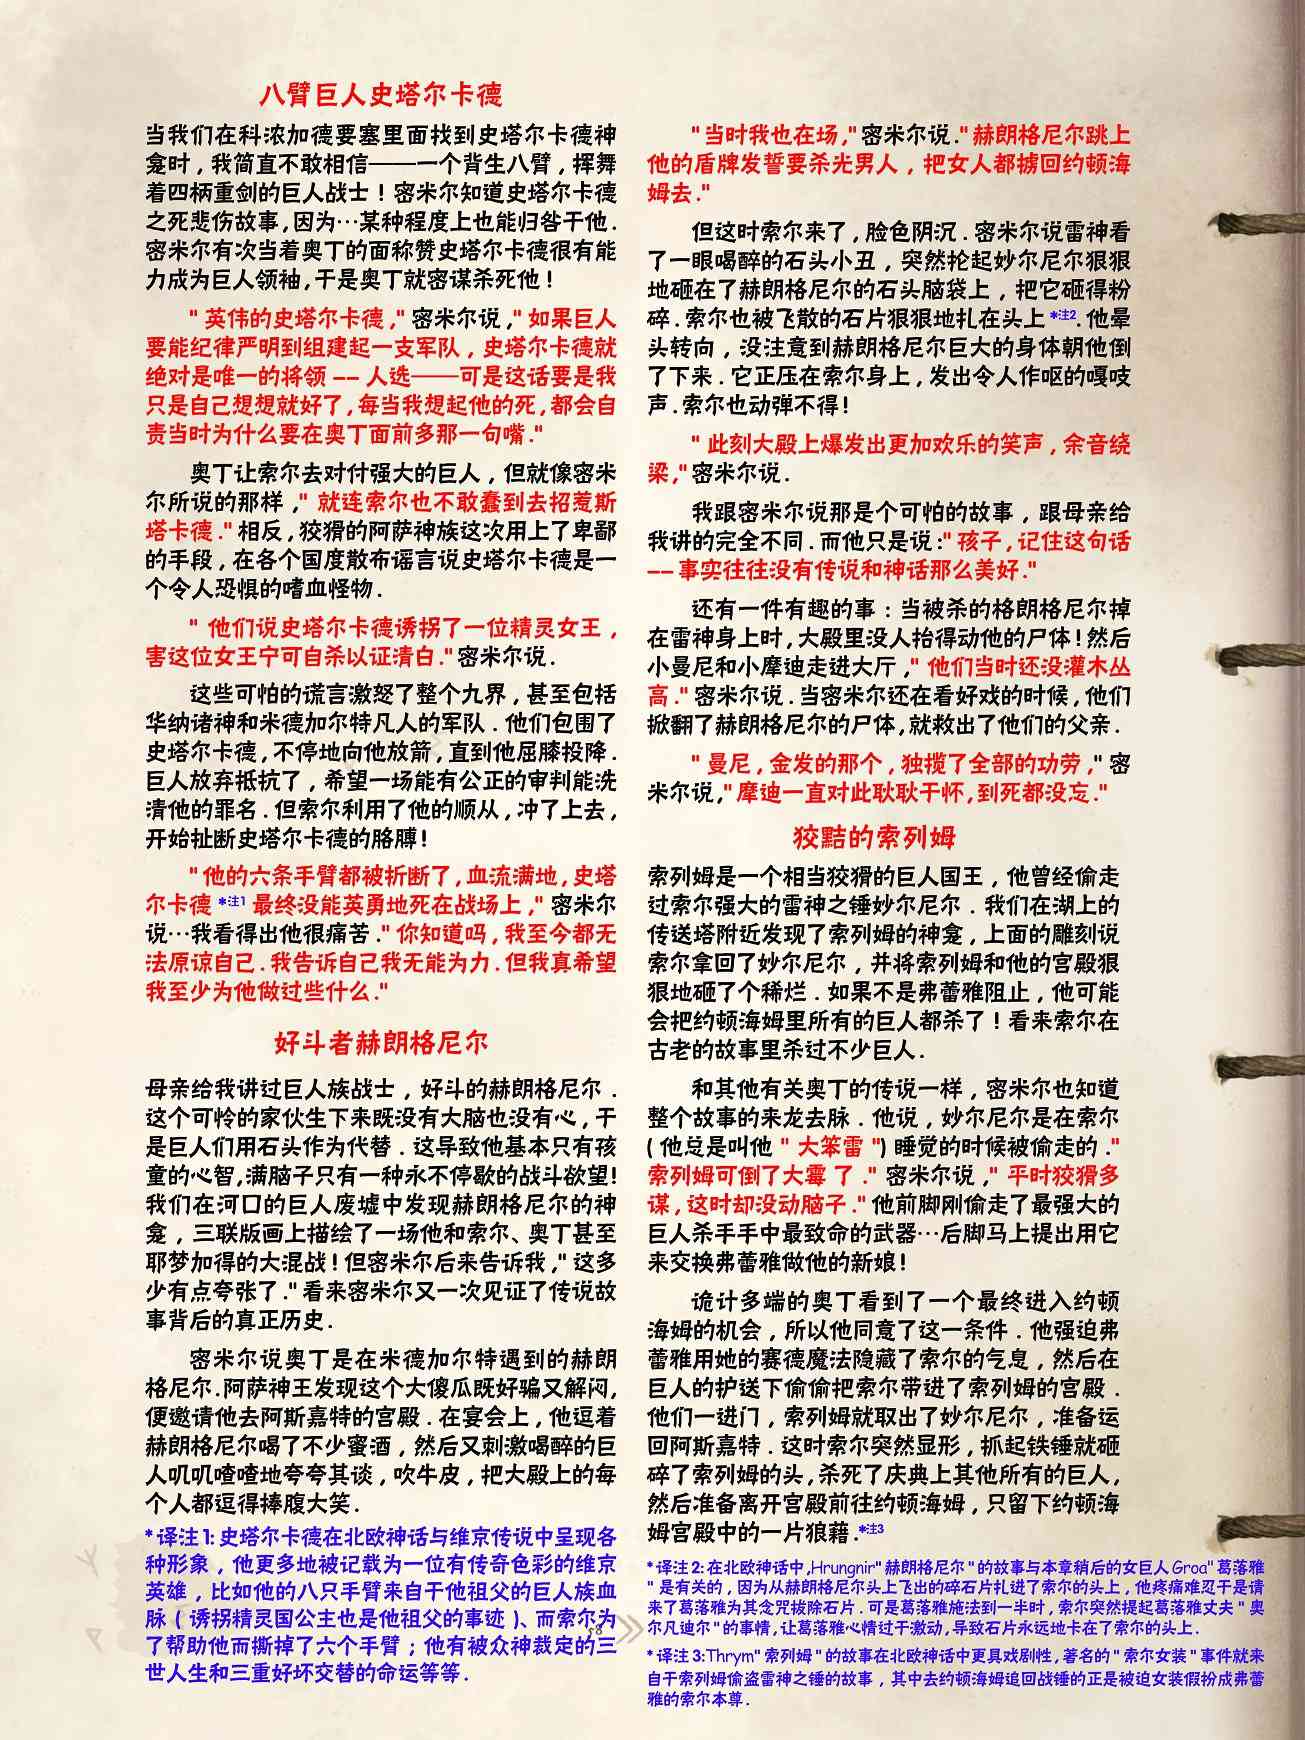 八臂巨人史塔尔卡德
当我们在科浓加德要塞里面找到史塔尔卡德神
龛时，我简直不敢相信——一个背生八臂，挥舞
着四柄重剑的巨人战士！密米尔知道史塔尔卡德
之死悲伤故事,因为…某种程度上也能归咎于他.
密米尔有次当着奥丁的面称赞史塔尔卡德很有能
力成为巨人领袖,于是奥丁就密谋杀死他！
"英伟的史塔尔卡德,"密米尔说,"如果巨人
要能纪律严明到组建起一支军队，史塔尔卡德就
绝对是唯一的将领 -- 人选——可是这话要是我
只是自己想想就好了,每当我想起他的死,都会自
责当时为什么要在奥丁面前多那一句嘴."
奥丁让索尔去对付强大的巨人，但就像密米
尔所说的那样,"就连索尔也不敢蠢到去招惹斯
塔卡德."相反,狡猾的阿萨神族这次用上了卑鄙
的手段,在各个国度散布谣言说史塔尔卡德是一
个令人恐惧的嗜血怪物.
"他们说史塔尔卡德诱拐了一位精灵女王，
害这位女王宁可自杀以证清白."密米尔说.
这些可怕的谎言激怒了整个九界，甚至包括
华纳诸神和米德加尔特凡人的军队.他们包围了
史塔尔卡德,不停地向他放箭,直到他屈膝投降.
巨人放弃抵抗了，希望一场能有公正的审判能洗
清他的罪名.但索尔利用了他的顺从,冲了上去,
开始扯断史塔尔卡德的胳膊！
"他的六条手臂都被折断了,血流满地,史塔
尔卡德 *注1 最终没能英勇地死在战场上,"密米尔
说…我看得出他很痛苦."你知道吗,我至今都无
法原谅自己.我告诉自己我无能为力.但我真希望
我至少为他做过些什么."
好斗者赫朗格尼尔
母亲给我讲过巨人族战士，好斗的赫朗格尼尔.
这个可怜的家伙生下来既没有大脑也没有心,于
是巨人们用石头作为代替.这导致他基本只有孩
童的心智,满脑子只有一种永不停歇的战斗欲望!
我们在河口的巨人废墟中发现赫朗格尼尔的神
龛，三联版画上描绘了一场他和索尔、奥丁甚至
耶梦加得的大混战！但密米尔后来告诉我,"这多
少有点夸张了."看来密米尔又一次见证了传说故
事背后的真正历史.
密米尔说奥丁是在米德加尔特遇到的赫朗
格尼尔.阿萨神王发现这个大傻瓜既好骗又解闷,
便邀请他去阿斯嘉特的宫殿.在宴会上,他逗着
赫朗格尼尔喝了不少蜜酒，然后又刺激喝醉的巨
人叽叽喳喳地夸夸其谈，吹牛皮，把大殿上的每
个人都逗得捧腹大笑.
*译注1:史塔尔卡德在北欧神话与维京传说中呈现各
种形象，他更多地被记载为一位有传奇色彩的维京
英雄，比如他的八只手臂来自于他祖父的巨人族血
脉(诱拐精灵国公主也是他祖父的事迹)、而索尔为
了帮助他而撕掉了六个手臂；他有被众神裁定的三
世人生和三重好坏交替的命运等等.
"当时我也在场,"密米尔说."赫朗格尼尔跳上
他的盾牌发誓要杀光男人，把女人都掳回约顿海
姆去."
但这时索尔来了,脸色阴沉.密米尔说雷神看
了一眼喝醉的石头小丑，突然抡起妙尔尼尔狠狠
地砸在了赫朗格尼尔的石头脑袋上，把它砸得粉
碎.索尔也被飞散的石片狠狠地扎在头上 *注2.他晕
头转向，没注意到赫朗格尼尔巨大的身体朝他倒
了下来.它正压在索尔身上,发出令人作呕的嘎吱
声.索尔也动弹不得!
"此刻大殿上爆发出更加欢乐的笑声,余音绕
梁,"密米尔说.
我跟密米尔说那是个可怕的故事，跟母亲给
我讲的完全不同.而他只是说:"孩子,记住这句话
-- 事实往往没有传说和神话那么美好."
还有一件有趣的事：当被杀的格朗格尼尔掉
在雷神身上时,大殿里没人抬得动他的尸体!然后
小曼尼和小摩迪走进大厅,"他们当时还没灌木丛
高."密米尔说.当密米尔还在看好戏的时候,他们
掀翻了赫朗格尼尔的尸体,就救出了他们的父亲.
"曼尼,金发的那个,独揽了全部的功劳,"密
米尔说,"摩迪一直对此耿耿于怀,到死都没忘."
狡黠的索列姆
索列姆是一个相当狡猾的巨人国王，他曾经偷走
过索尔强大的雷神之锤妙尔尼尔.我们在湖上的
传送塔附近发现了索列姆的神龛,上面的雕刻说
索尔拿回了妙尔尼尔，并将索列姆和他的宫殿狠
狠地砸了个稀烂.如果不是弗蕾雅阻止，他可能
会把约顿海姆里所有的巨人都杀了！看来索尔在
古老的故事里杀过不少巨人.
和其他有关奥丁的传说一样，密米尔也知道
整个故事的来龙去脉.他说，妙尔尼尔是在索尔
(他总是叫他"大笨雷")睡觉的时候被偷走的."
索列姆可倒了大霉 了."密米尔说,"平时狡猾多
谋,这时却没动脑子."他前脚刚偷走了最强大的
巨人杀手手中最致命的武器…后脚马上提出用它
来交换弗蕾雅做他的新娘!
诡计多端的奥丁看到了一个最终进入约顿
海姆的机会，所以他同意了这一条件.他强迫弗
蕾雅用她的赛德魔法隐藏了索尔的气息，然后在
巨人的护送下偷偷把索尔带进了索列姆的宫殿.
他们一进门，索列姆就取出了妙尔尼尔，准备运
回阿斯嘉特.这时索尔突然显形，抓起铁锤就砸
碎了索列姆的头,杀死了庆典上其他所有的巨人,
然后准备离开宫殿前往约顿海姆，只留下约顿海
姆宫殿中的一片狼藉.*注3
*译注2:在北欧神话中,Hrungnir"赫朗格尼尔"的故事与本章稍后的女巨人Groa"葛落雅
"是有关的，因为从赫朗格尼尔头上飞出的碎石片扎进了索尔的头上，他疼痛难忍于是请
来了葛落雅为其念咒拔除石片.可是葛落雅施法到一半时,索尔突然提起葛落雅丈夫"奥
尔凡迪尔"的事情,让葛落雅心情过于激动,导致石片永远地卡在了索尔的头上.
*译注3:Thrym"索列姆"的故事在北欧神话中更具戏剧性,著名的"索尔女装"事件就来
自于索列姆偷盗雷神之锤的故事，其中去约顿海姆追回战锤的正是被迫女装假扮成弗蕾
雅的索尔本尊.